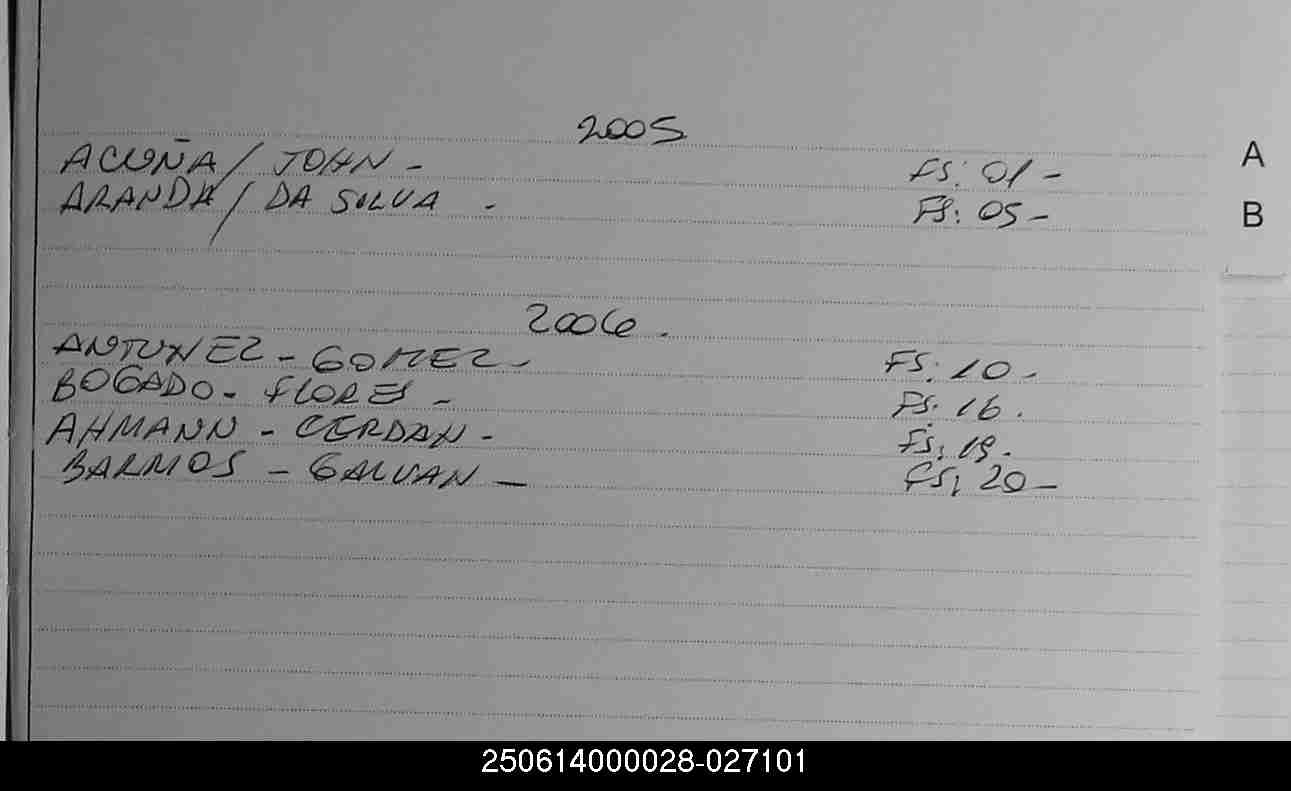 2005
ACUÑA / JOHN - FS: 01 -
A
ARANDA / DA SILVA - FS: 05 -
B
2006.
ANTUNEZ - GOMEZ - FS: 10 -
BOGADO - FLORES - FS: 16.
AHMANN - CERDAN - FS: 19.
BARMOS - GALVAN - FS: 20 -
250614000028-027101